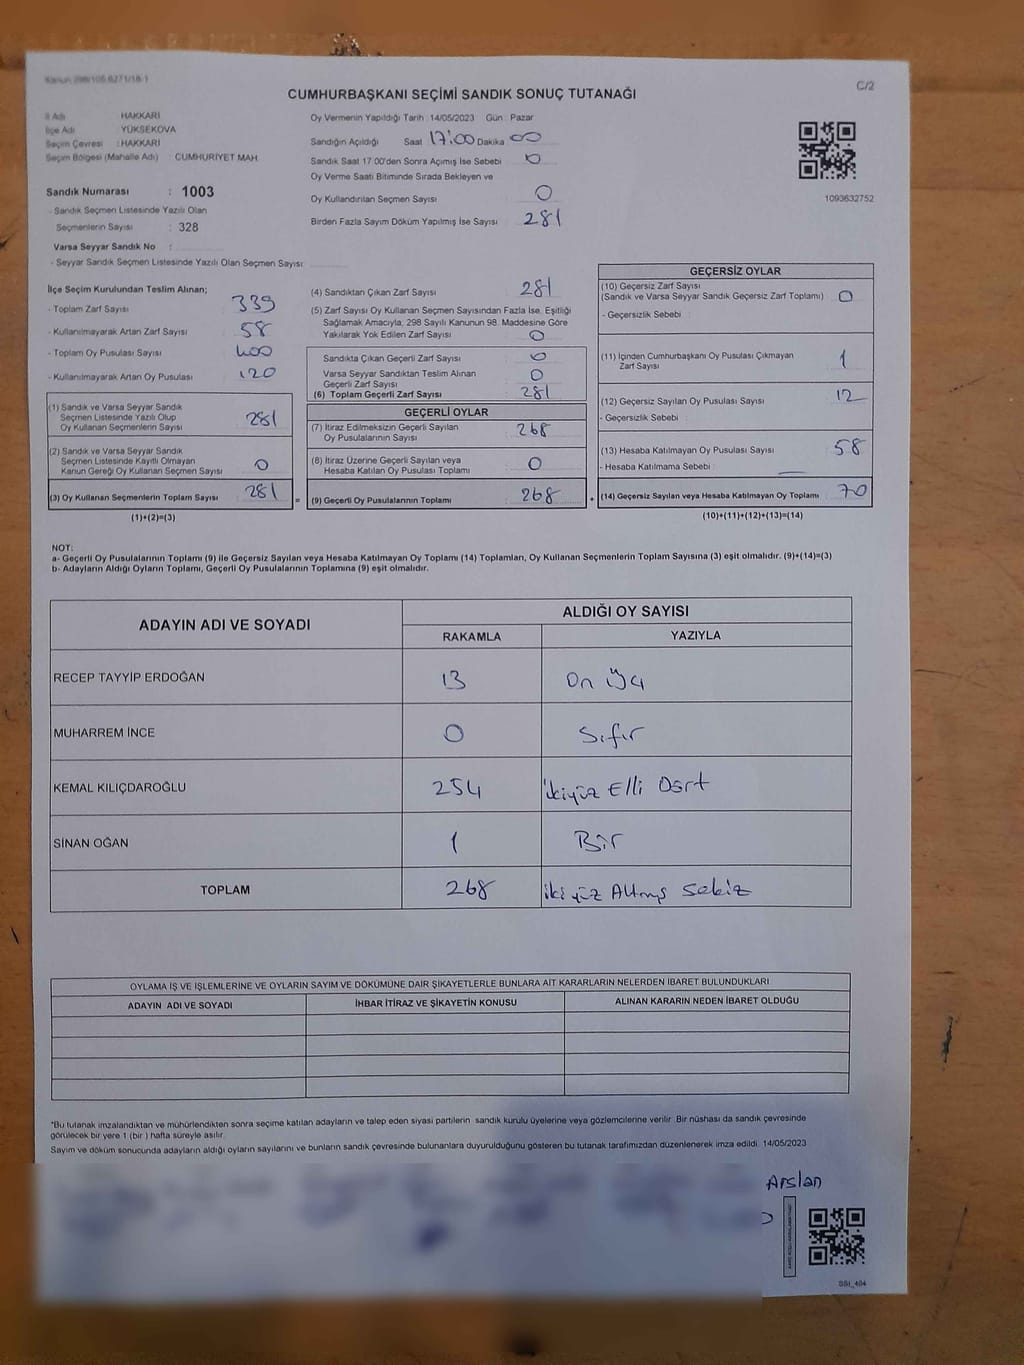 Kanun 298/105.6271/18-1
C/2
CUMHURBAŞKANI SEÇİMİ SANDIK SONUÇ TUTANAĞI
İl Adı HAKKARİ
İlçe Adı : YÜKSEKOVA
Seçim Çevresi : HAKKARİ
Seçim Bölgesi (Mahalle Adı) : CUMHURİYET MAH.
Sandık Numarası : 1003
- Sandık Seçmen Listesinde Yazılı Olan
Seçmenlerin Sayısı : 328
Varsa Seyyar Sandık No :
- Seyyar Sandık Seçmen Listesinde Yazılı Olan Seçmen Sayısı:
Oy Vermenin Yapıldığı Tarih : 14/05/2023 Gün : Pazar
Sandığın Açıldığı Saat 17:00 Dakika 00
Sandık Saat 17:00'den Sonra Açımış İse Sebebi 0
Oy Verme Saati Bitiminde Sırada Bekleyen ve
Oy Kullandırılan Seçmen Sayısı 0
Birden Fazla Sayım Döküm Yapılmış İse Sayısı 281
1093632752
İlçe Seçim Kurulundan Teslim Alınan;
- Toplam Zarf Sayısı 339
- Kullanılmayarak Artan Zarf Sayısı 58
- Toplam Oy Pusulası Sayısı 400
- Kullanılmayarak Artan Oy Pusulası 120
(1) Sandık ve Varsa Seyyar Sandık
Seçmen Listesinde Yazılı Olup
Oy Kullanan Seçmenlerin Sayısı 281
(2) Sandık ve Varsa Seyyar Sandık
Seçmen Listesinde Kayıtlı Olmayan
Kanun Gereği Oy Kullanan Seçmen Sayısı 0
(3) Oy Kullanan Seçmenlerin Toplam Sayısı 281 =
(1)+(2)=(3)
(4) Sandıktan Çıkan Zarf Sayısı 281
(5) Zarf Sayısı Oy Kullanan Seçmen Sayısından Fazla İse, Eşitliği
Sağlamak Amacıyla, 298 Sayılı Kanunun 98. Maddesine Göre
Yakılarak Yok Edilen Zarf Sayısı 0
Sandıkta Çıkan Geçerli Zarf Sayısı 0
Varsa Seyyar Sandıktan Teslim Alınan
Geçerli Zarf Sayısı 0
(6) Toplam Geçerli Zarf Sayısı 281
GEÇERLİ OYLAR
(7) İtiraz Edilmeksizin Geçerli Sayılan
Oy Pusulalarının Sayısı 268
(8) İtiraz Üzerine Geçerli Sayılan veya
Hesaba Katılan Oy Pusulası Toplamı 0
(9) Geçerli Oy Pusulalarının Toplamı 268 +
GEÇERSİZ OYLAR
(10) Geçersiz Zarf Sayısı
(Sandık ve Varsa Seyyar Sandık Geçersiz Zarf Toplamı) 0
- Geçersizlik Sebebi :
(11) İçinden Cumhurbaşkanı Oy Pusulası Çıkmayan
Zarf Sayısı 1
(12) Geçersiz Sayılan Oy Pusulası Sayısı 12
- Geçersizlik Sebebi :
(13) Hesaba Katılmayan Oy Pusulası Sayısı 58
- Hesaba Katılmama Sebebi :
(14) Geçersiz Sayılan veya Hesaba Katılmayan Oy Toplamı 70
(10)+(11)+(12)+(13)=(14)
NOT:
a- Geçerli Oy Pusulalarının Toplamı (9) ile Geçersiz Sayılan veya Hesaba Katılmayan Oy Toplamı (14) Toplamları, Oy Kullanan Seçmenlerin Toplam Sayısına (3) eşit olmalıdır. (9)+(14)=(3)
b- Adayların Aldığı Oyların Toplamı, Geçerli Oy Pusulalarının Toplamına (9) eşit olmalıdır.
ADAYIN ADI VE SOYADI ALDIĞI OY SAYISI
RAKAMLA YAZIYLA
RECEP TAYYİP ERDOĞAN 13 On Üç
MUHARREM İNCE 0 Sıfır
KEMAL KILIÇDAROĞLU 254 ikiyüz Elli Dört
SİNAN OĞAN 1 Bir
TOPLAM 268 iki yüz Altmış Sekiz
OYLAMA İŞ VE İŞLEMLERİNE VE OYLARIN SAYIM VE DÖKÜMÜNE DAİR ŞİKAYETLERLE BUNLARA AİT KARARLARIN NELERDEN İBARET BULUNDUKLARI
ADAYIN ADI VE SOYADI İHBAR İTİRAZ VE ŞİKAYETİN KONUSU ALINAN KARARIN NEDEN İBARET OLDUĞU
*Bu tutanak imzalandıktan ve mühürlendikten sonra seçime katılan adayların ve talep eden siyasi partilerin sandık kurulu üyelerine veya gözlemcilerine verilir. Bir nüshası da sandık çevresinde
görülecek bir yere 1 (bir) hafta süreyle asılır.
Sayım ve döküm sonucunda adayların aldığı oyların sayılarını ve bunların sandık çevresinde bulunanlara duyurulduğunu gösteren bu tutanak tarafımızdan düzenlenerek imza edildi. 14/05/2023
Arslan